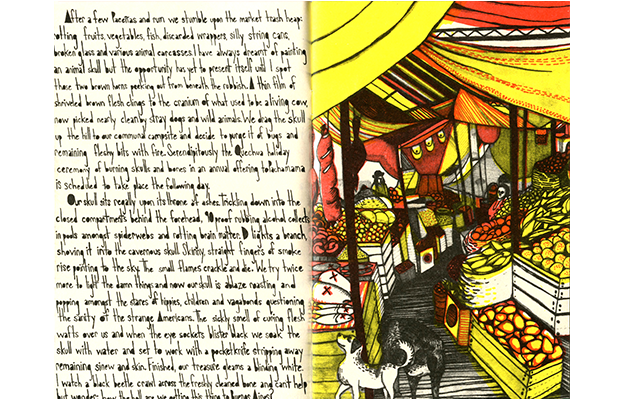 After a few Paceñas and rum we stumble upon the market trash heap:
rotting fruits, vegetables, fish, discarded wrappers, silly string cans,
broken glass and various animal carcasses. I have always dreamt of painting
an animal skull but the opportunity has yet to present itself until I spot
those two brown horns peeking out from beneath the rubbish. A thin film of
shriveled brown flesh clings to the cranium of what used to be a living cow,
now picked nearly clean by stray dogs and wild animals. We drag the skull
up the hill to our communal campsite and decide to purge it of bugs and
remaining fleshy bits with fire. Serendipitously the Quechua holiday
ceremony of burning skulls and bones in an annual offering to Pachamama
is scheduled to take place the following day.
Our skull sits regally upon its throne of ashes. Trickling down into the
closed compartments behind the forehead, 90 proof rubbing alcohol collects
in pools amongst spiderwebs and rotting brain matter. D lights a branch,
shoving it into the cavernous skull. Skinny, straight fingers of smoke
rise pointing to the sky. The small flames crackle and die. We try twice
more to light the damn thing and now our skull is ablaze roasting and
popping amongst the stares of hippies, children and vagabonds questioning
the sanity of the strange Americans. The sickly smell of curing flesh
wafts over us and when the eye sockets blister black we soak the
skull with water and set to work with a pocketknife stripping away
remaining sinew and skin. Finished, our treasure gleams a blinding white.
I watch a black beetle crawl across the freshly cleaned bone and can't help
but wonder: how the hell are we getting this thing to Buenos Aires?